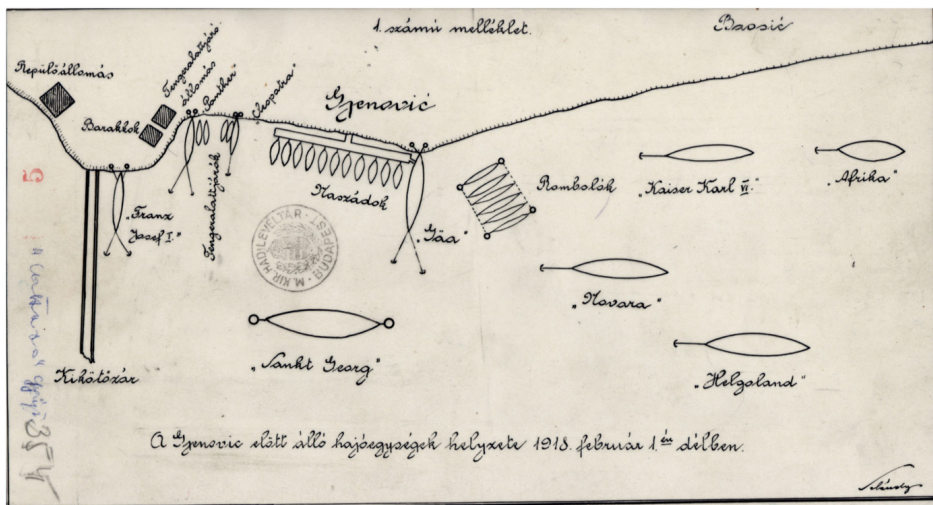 1. számú melléklet.
Baosić
Repülőállomás
Tengeralattjáró
állomás
Barakkok
"Panther"
"Cleopátra"
Gjenović
Tengeralattjárók
Naszádok
Rombolók
"Kaiser Karl VI."
"Afrika"
"Franz
Josef I."
"Gäa"
M. KIR. HADI LEVÉLTÁR · BUDAPEST ·
"Novara"
"Sankt Georg"
"Helgoland"
Kikötőzár
5
354
A Gjenovic előtt álló hajóegységek helyzete 1918. február 1.én délben.